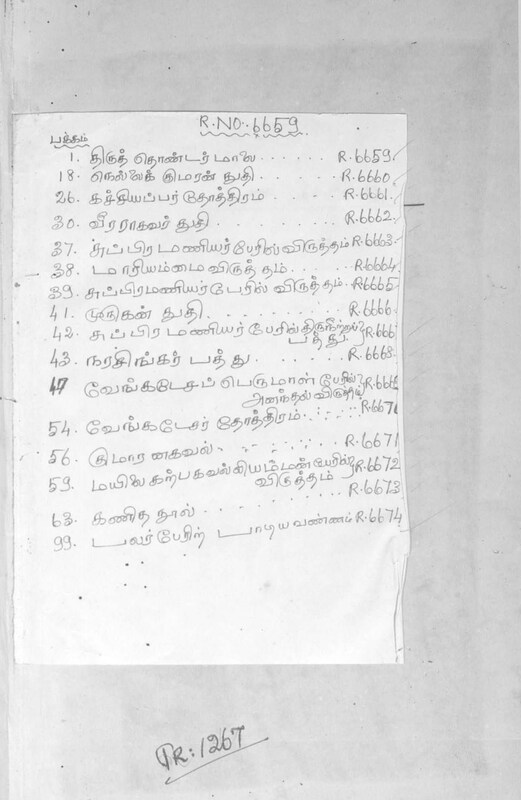 R.NO. 6659
பத்கம்
1. திருத் தொண்டர் மாலை . . . . . . R.6659
18. நெல்லைக் குமரன் துதி . . . . . . R.6660
26. கச்சியப்பர் தோத்திரம் . . . . . . R.6661
30. வீரராகவர் துதி . . . . . . R.6662
37. சுப்பிரமணியர் பேரில் விருத்தம் R.6663
38. மாரியம்மை விருத்தம் . . . . R.6664
39. சுப்பிரமணியர் பேரில் விருத்தம் . R.6665
41. முருகன் துதி . . . . . . R.6666
42. சுப்பிரமணியர் பேரில் திருநீற்றுப் R.666
பத்து
43. நரசிங்கர் பத்து . . . . . . R.6668
47 வேங்கடேசப் பெருமாள் பேரில்
அனந்தல் விருத்
54. வேங்கடேசர் தோத்திரம் . . . . R.667
56. குமாரனகவல் . . . . . . R.6671
59. மயிலை கற்பகவல்லியம்மன் பேரில் R.6672
விருத்தம்
63. கணித நூல் . . . . . . R.6673
99. பலர் பேரிற் பாடிய வண்ணம் R.6674
TR:1267